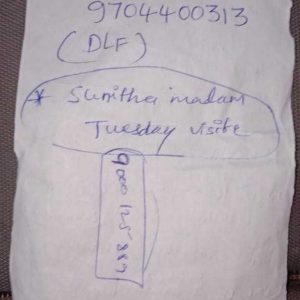 9704400313
(DLF)
* Sunitha madam
Tuesday visite
9000 125 889